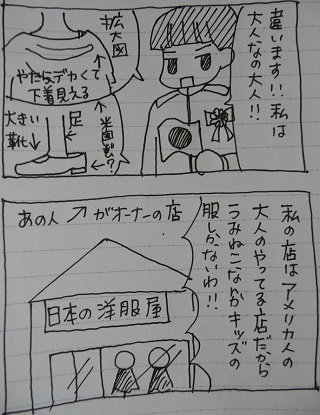 違います!!私は
大人なの大人!!
拡大図
やたらデカくて
下着見える
↑米国製?
大きい
靴↓
足
↑
私の店はアメリカ人の
大人のやってる店だから
うみねこなんかキッズの
服しかないわ!!
あの人↗がオーナーの店
日本の洋服屋